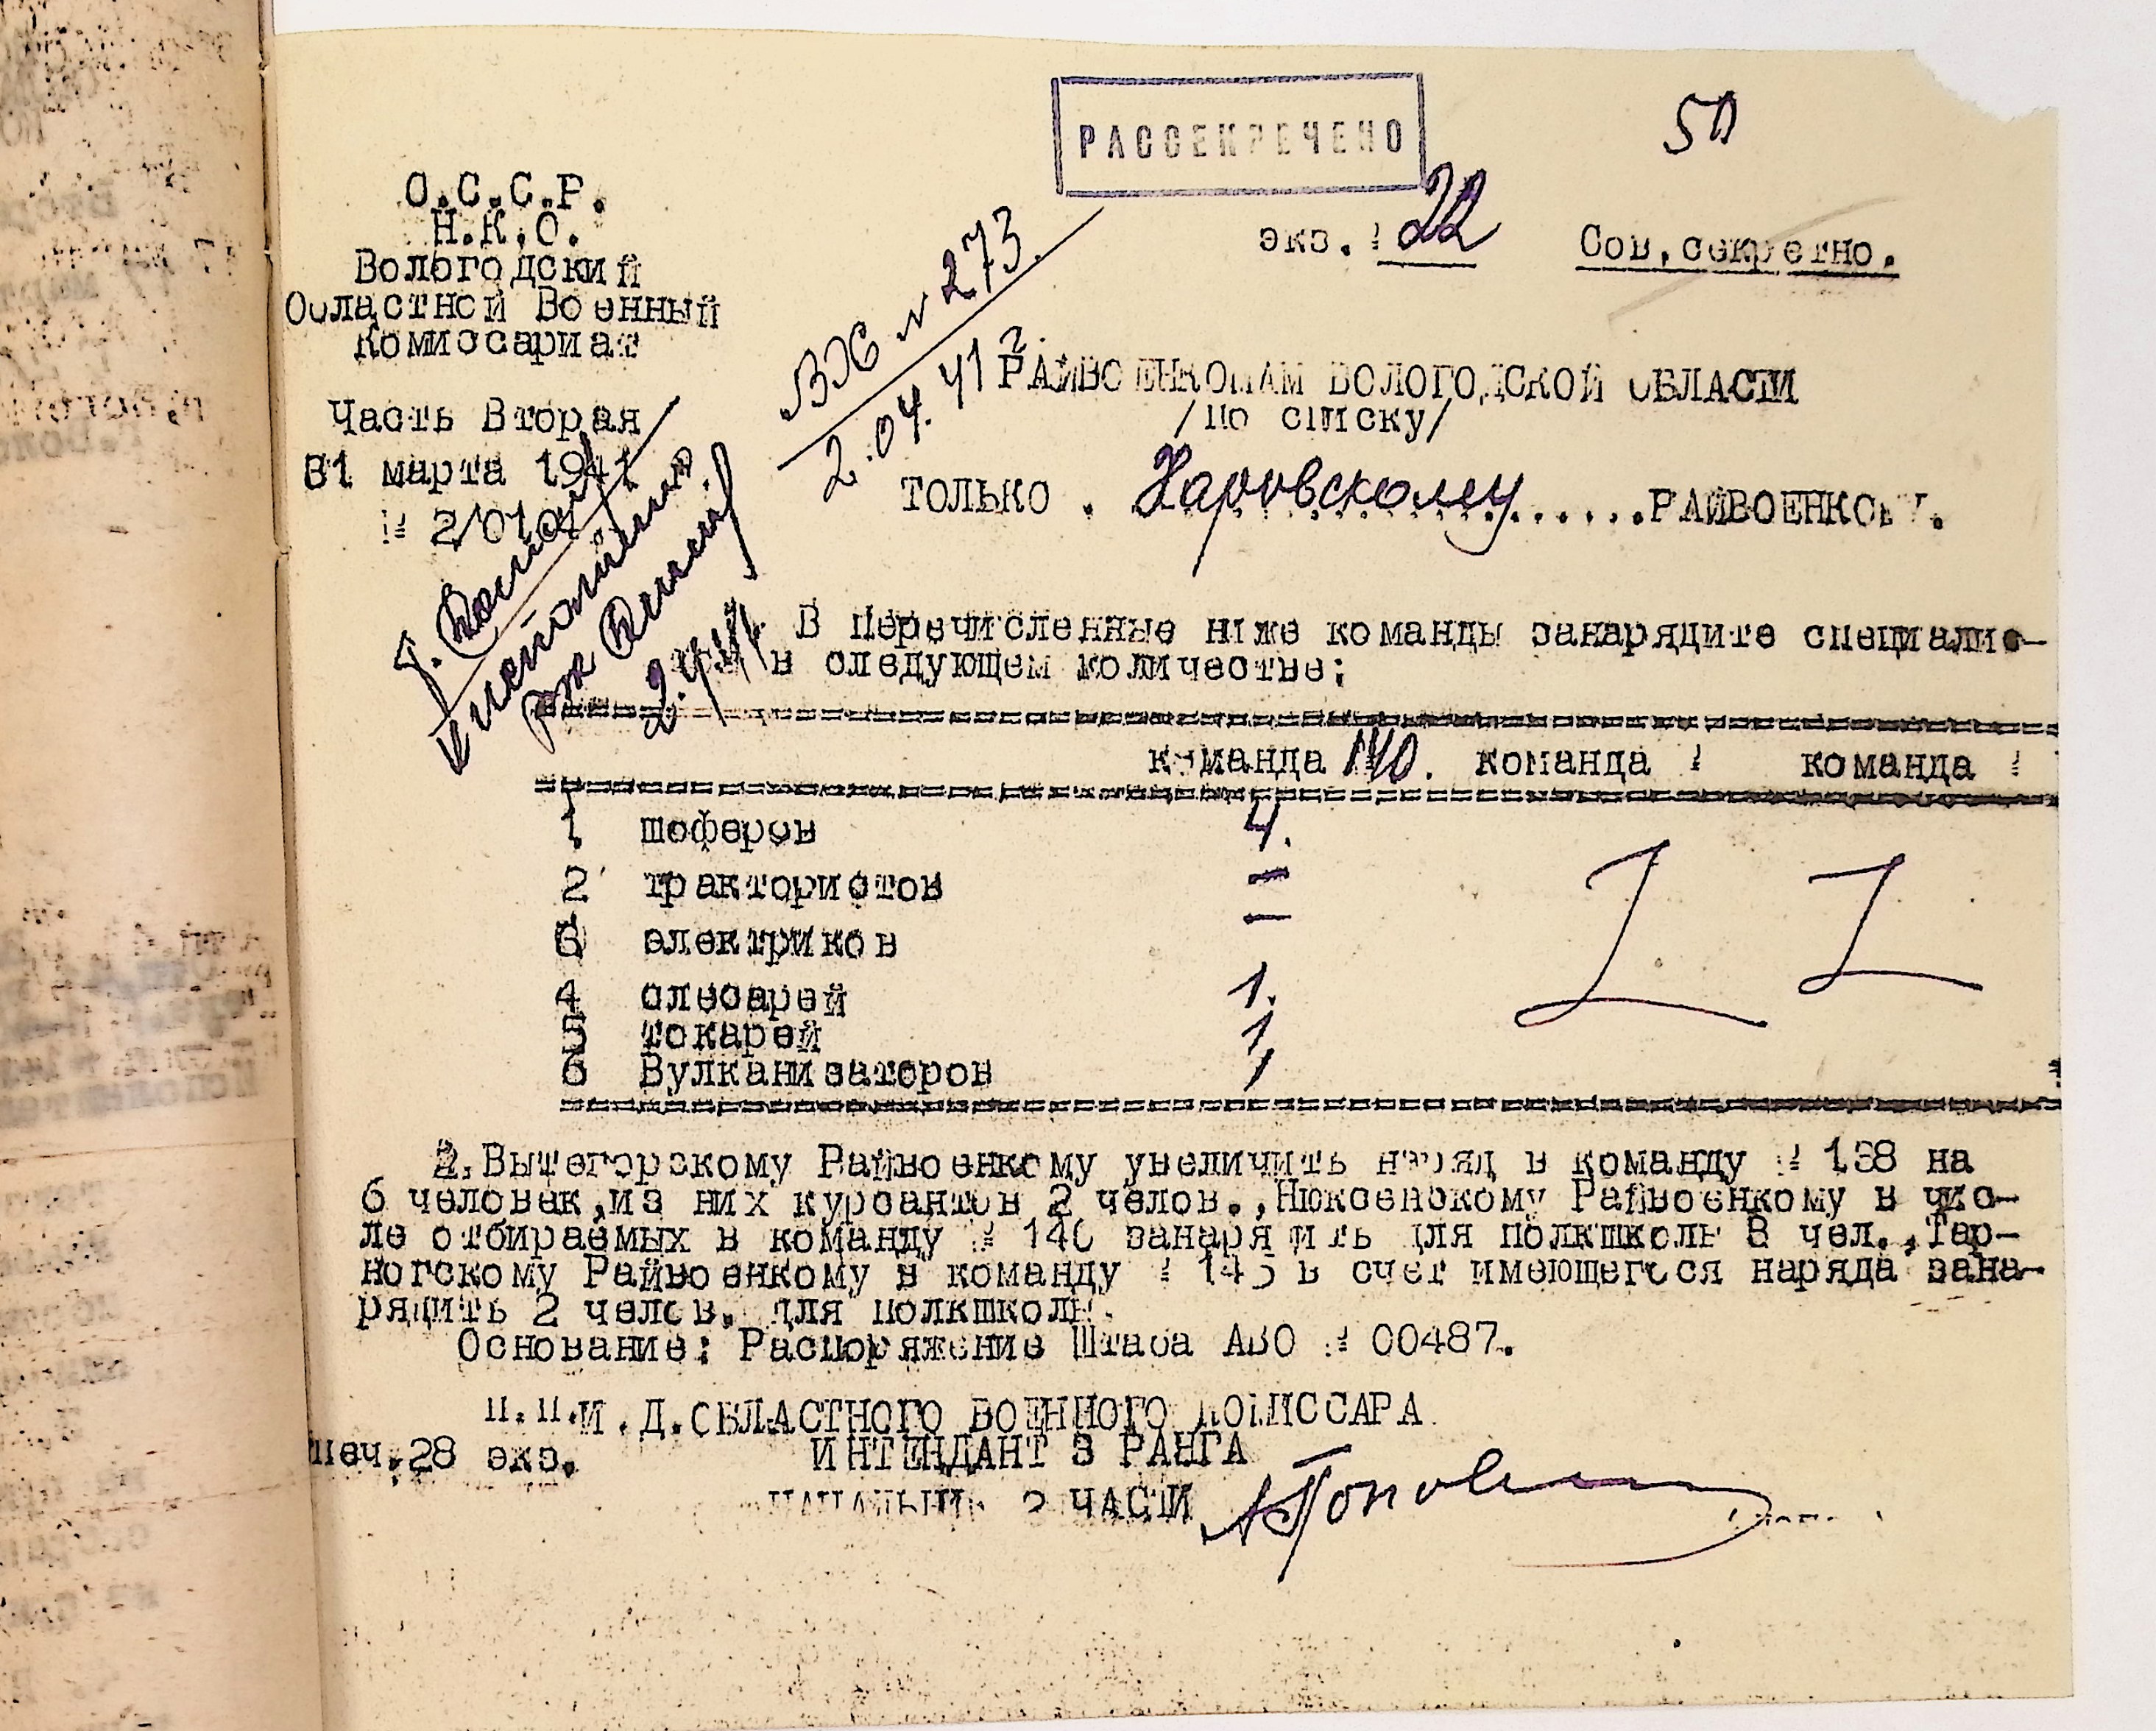 РАССЕКРЕЧЕНО
50
С.С.С.Р.
Н.К.О.
Вологодский
Областной Военный
Комиссариат
экз. № 22
Сов.секретно.
Вх № 273.
2.04.41 г.
Часть Вторая
31 марта 1941 г.
№ 2/0104
РАЙВОЕНКОМАМ ВОЛОГОДСКОЙ ОБЛАСТИ
/по списку/
ТОЛЬКО . Харовскому......РАЙВОЕНКОМУ.
2.4.41 г.
В перечисленные ниже команды занарядите специалис-
в следующем количестве:
команда 140. команда № команда №
1 шоферов 4.
2 трактористов —
3 электриков —
4 слесарей 1.
5 токарей 1
6 Вулканизаторов 1
2.Вытегорскому Райвоенкому увеличить наряд в команду № 138 на
6 человек,из них курсантов 2 челов.,Нюксенскому Райвоенкому в чис-
ле отбираемых в команду № 140 занарядить для полкшколы 3 чел.,Тар-
ногскому Райвоенкому в команду № 145 в счет имеющегося наряда зана-
рядить 2 челов. для полкшколы.
Основание: Распоряжение Штаба АВО № 00487.
п.п.И.Д.ОБЛАСТНОГО ВОЕННОГО КОМИССАРА
ИНТЕНДАНТ 3 РАНГА
печ.28 экз.
НАЧАЛЬНИК 2 ЧАСТИ